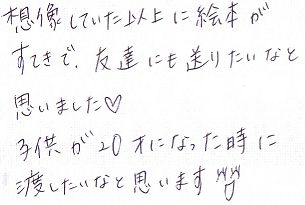 想像していた以上に絵本が
すてきで、友達にも送りたいなと
思いました♡
子供が20才になった時に
渡したいなと思います